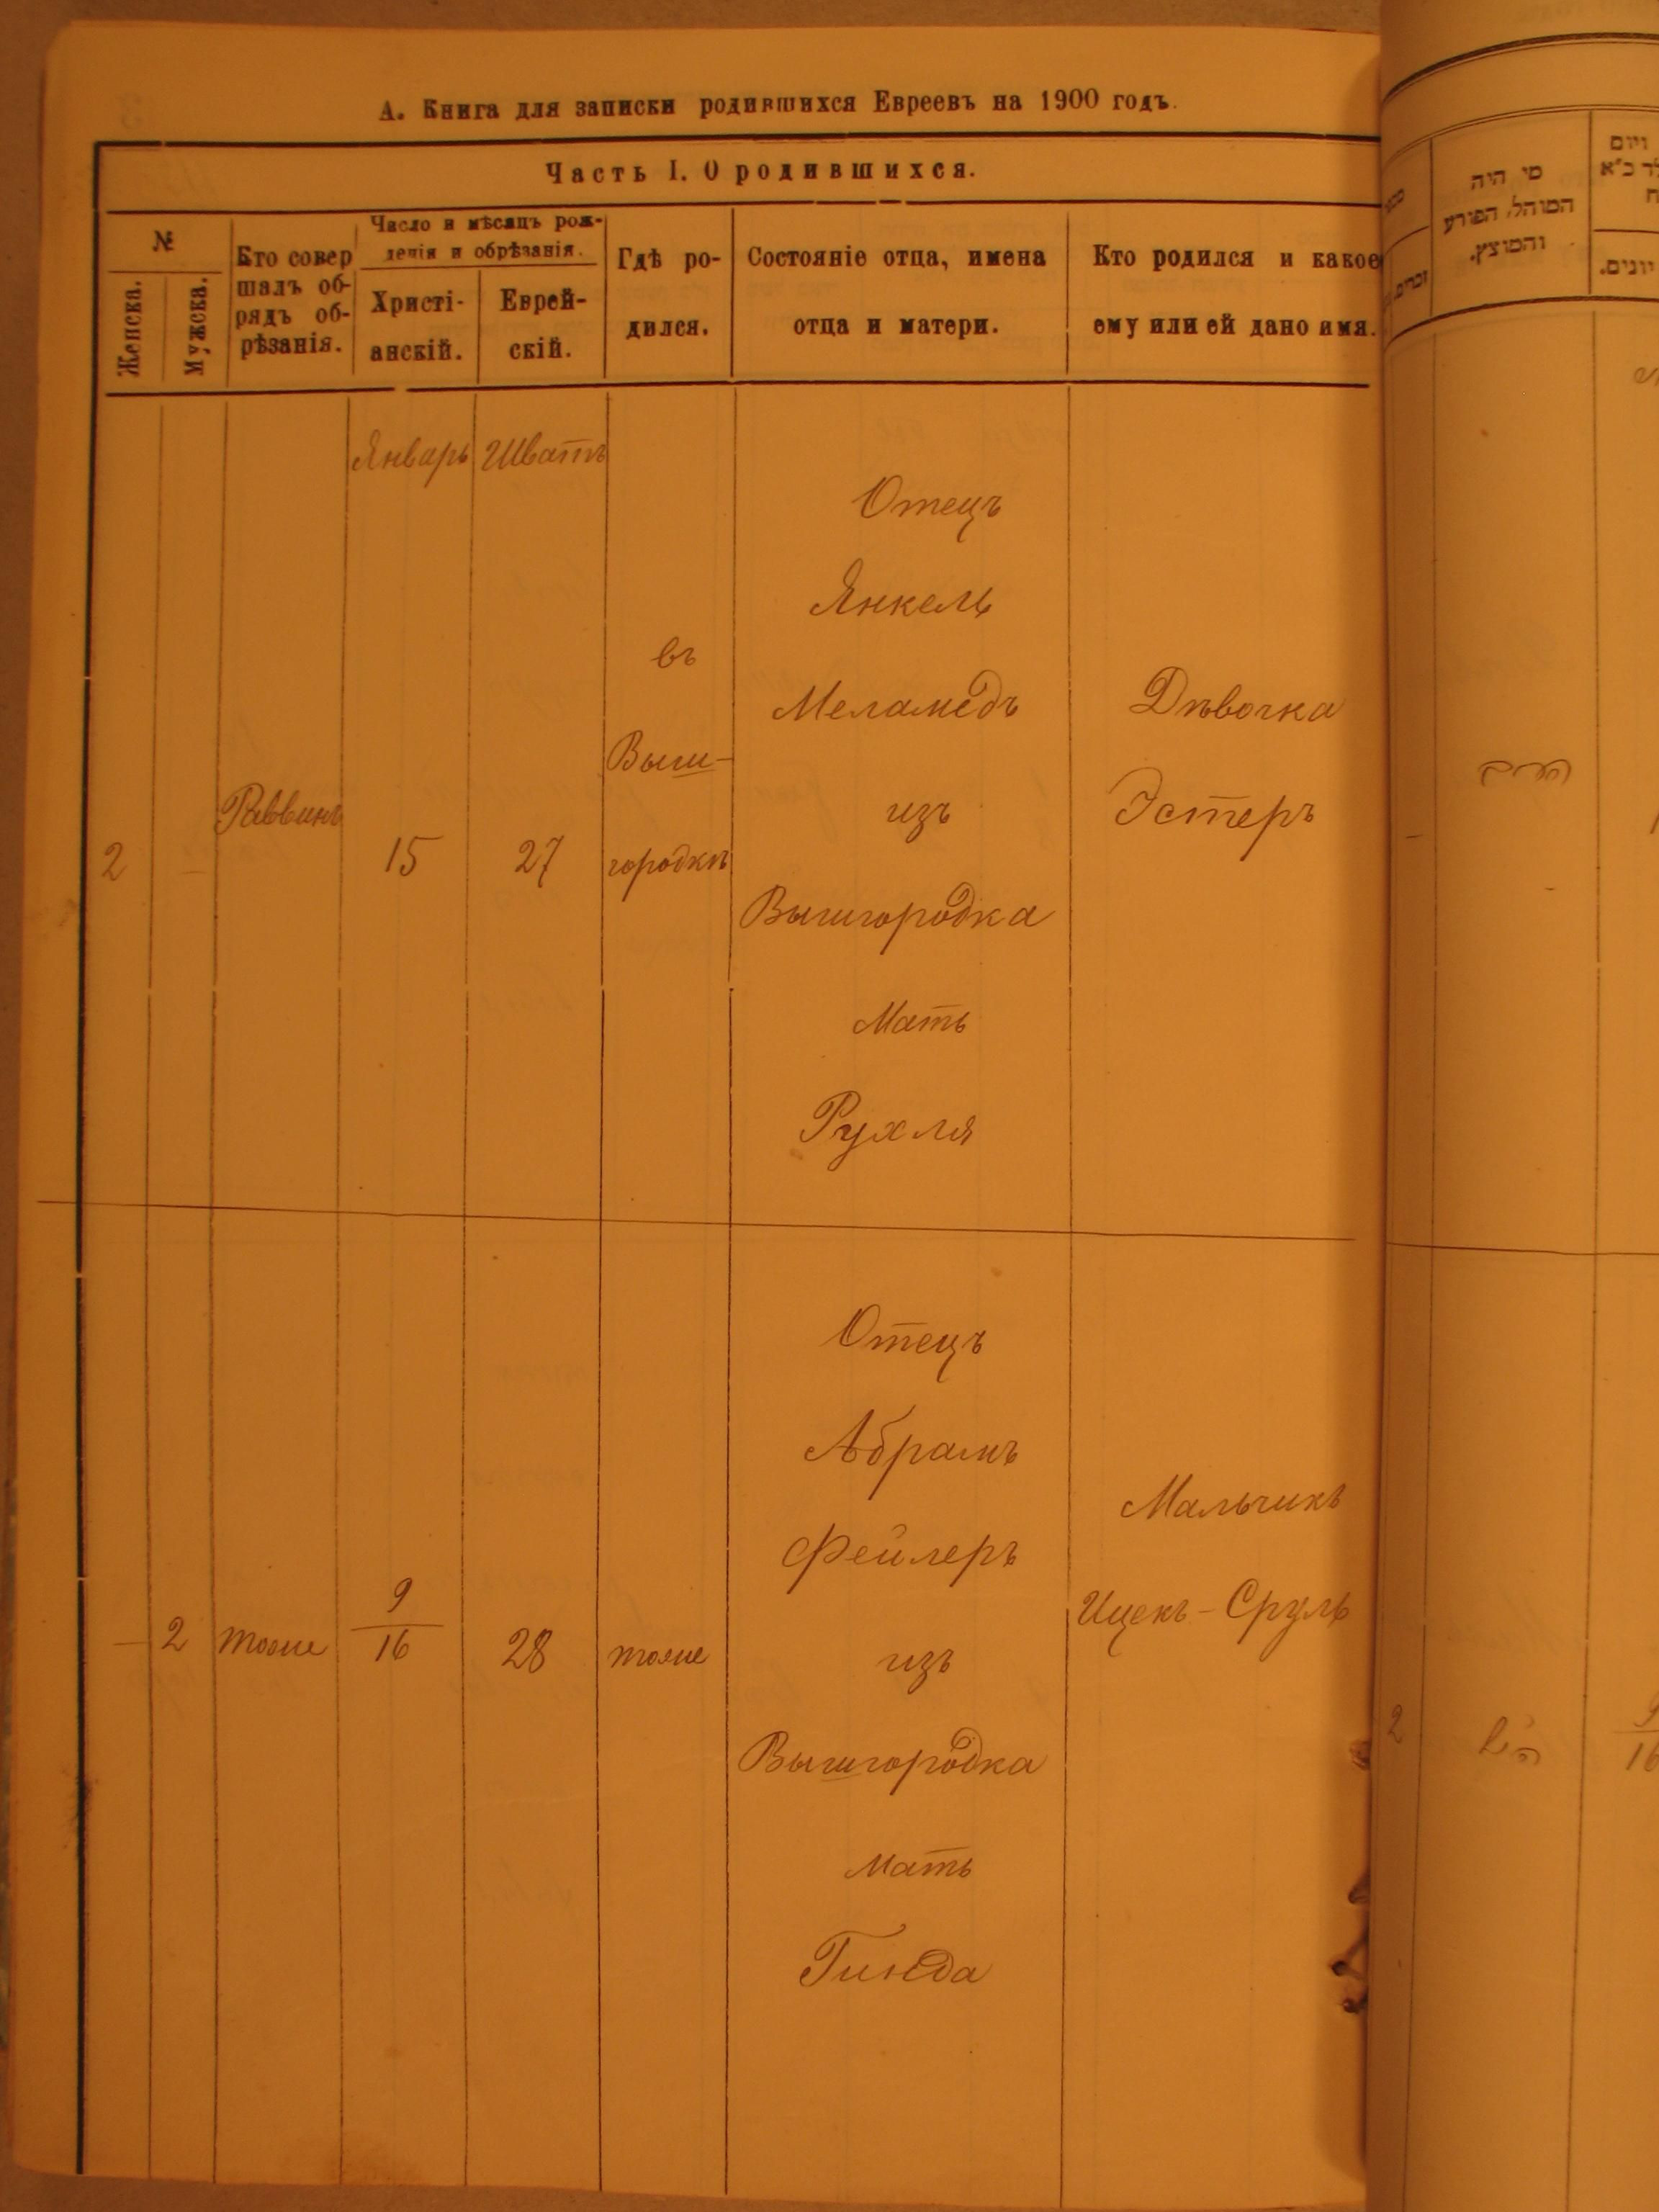 А. Книга для записки родившихся Евреевъ на 1900 годъ.
Часть I. О родившихся.
№
Женска.
Мужска.
Кто совер
шалъ об-
рядъ об-
рѣзанія.
Число и мѣсяцъ рож-
денія и обрѣзанія.
Христі-
анскій.
Еврей-
скій.
Гдѣ ро-
дился.
Состояніе отца, имена
отца и матери.
Кто родился и какое
ему или ей дано имя.
Январь Шватъ
2
—
Раввинъ
15
27
въ
Выш-
городкѣ
Отецъ
Янкель
Меламедъ
изъ
Вышгородка
Мать
Рухля
Дѣвочка
Эстеръ
— 2
тоже
9
16
28
тоже
Отецъ
Абрамъ
Фейлеръ
изъ
Вышгородка
мать
Гинда
Мальчикъ
Ицекъ-Сруль
מי היה
המוהל, הפורע
והמוצץ.
ויום
יונים.
—
2
9
16